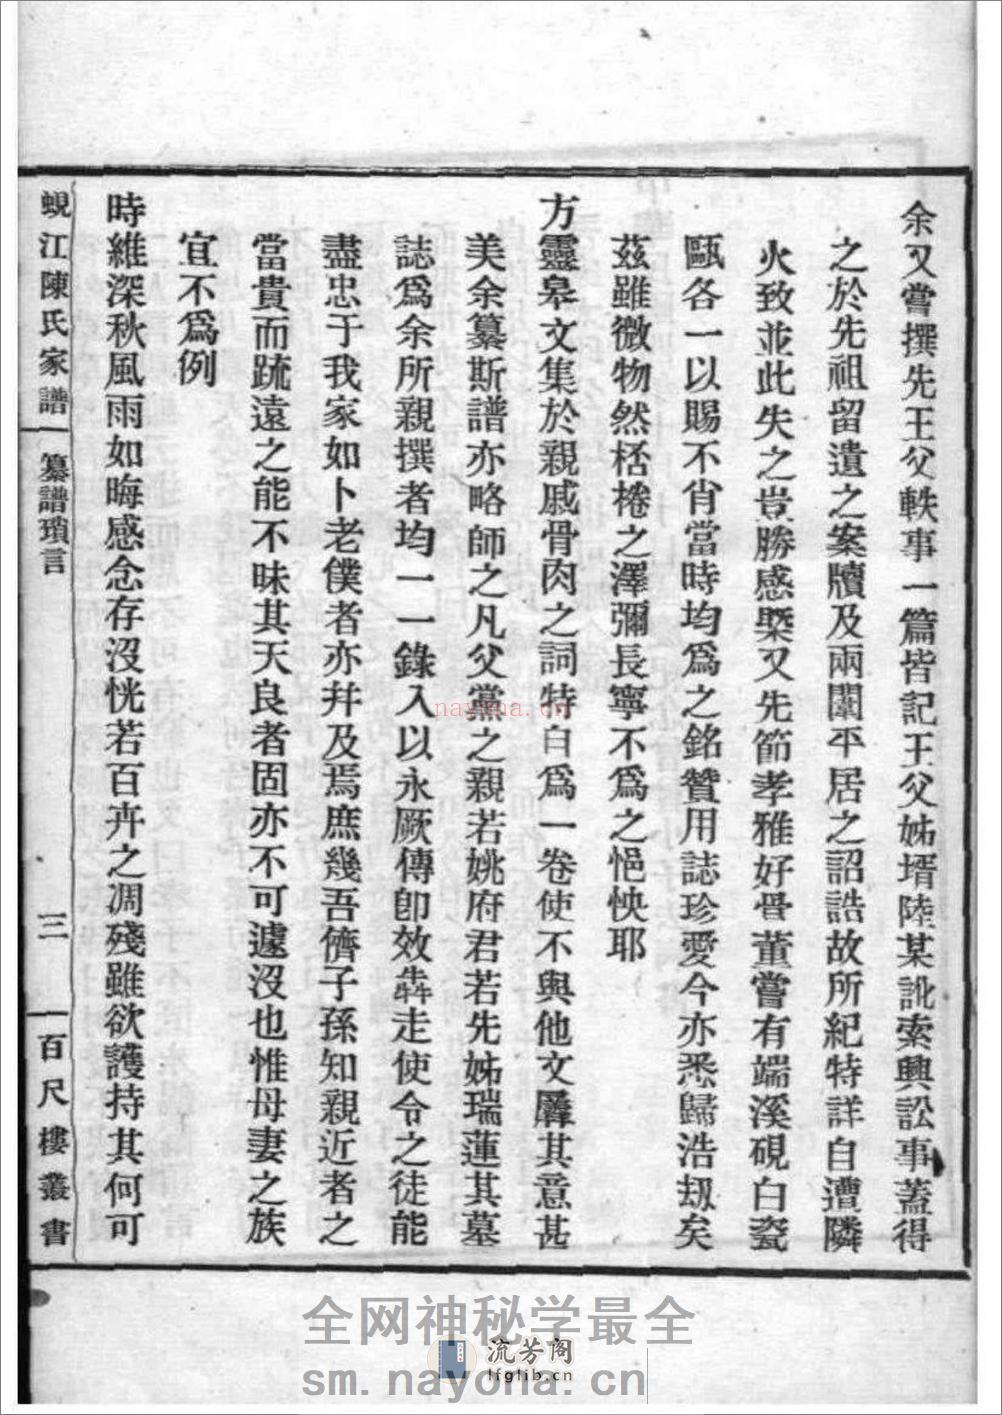 余又嘗撰先王父軼事一篇皆記王父姊壻陸某訛索興訟事蓋得
之於先祖留遺之案牘及兩闈平居之詔誥故所紀特詳自遭隣
火致並此失之豈勝感槩又先節孝雅好骨董嘗有端溪硯白瓷
甌各一以賜不肖當時均爲之銘贊用誌珍愛今亦悉歸浩刼矣
茲雖微物然桮棬之澤彌長寧不爲之悒怏耶
方靈皋文集於親戚骨肉之詞特白爲一卷使不與他文羼其意甚
美余纂斯譜亦略師之凡父黨之親若姚府君若先姊瑞蓮其墓
誌爲余所親撰者均一一錄入以永厥傳卽效犇走使令之徒能
盡忠于我家如卜老僕者亦幷及焉庶幾吾儕子孫知親近者之
當貴而疏遠之能不昧其天良者固亦不可遽沒也惟母妻之族
宜不爲例
時維深秋風雨如晦感念存沒恍若百卉之凋殘雖欲護持其何可
蜆江陳氏家譜 纂譜瑣言 三 百尺樓叢書
nayona.cn
全网神秘学最全
流芳阁
lfglib.cn
sm.nayona.cn